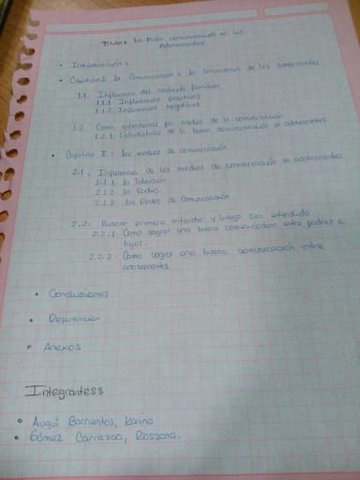 Tema: La Mala comunicación en los
Adolescentes
• Introducción:
• Capitulo I: La Comunicación y la convivencia de los adolescentes
1.1. Influencia del contexto familiar
1.1.1 Influencias positivas
1.1.2 Influencias negativas
1.2. Como entendernos por medio de la comunicación
1.2.1 Estadísticas de la buena comunicación en adolescentes
• Capitulo II: los medios de comunicación
2.1. Influencia de los medios de comunicación en adolescentes
2.1.1. la Television
2.1.2. la Radio
2.1.3. las Redes de Comunicación
2.2: Buscar primero entender y luego ser entendido
2.2.1 Como lograr una buena comunicación entre padres e
hijos.
2.2.2: Como lograr una buena comunicación entre
adolescentes
• Conclusiones
• Referencias
• Anexos
Integrantes:
• Auqui Barrientos, Karina
• Gómez Carrasco, Rossana.